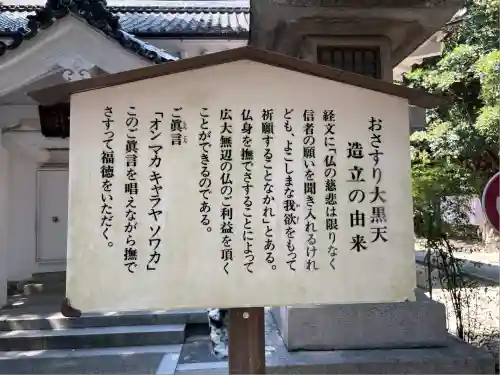 おさすり大黒天
造立の由来
経文に「仏の慈悲は限りなく
信者の願いを聞き入れるけれ
ども、よこしまな我欲をもって
祈願することなかれ」とある。
仏身を撫でさすることによって
広大無辺の仏のご利益を頂く
ことができるのである。
ご眞言
「オンマカキャラヤソワカ」
このご眞言を唱えながら撫で
さすって福徳をいただく。